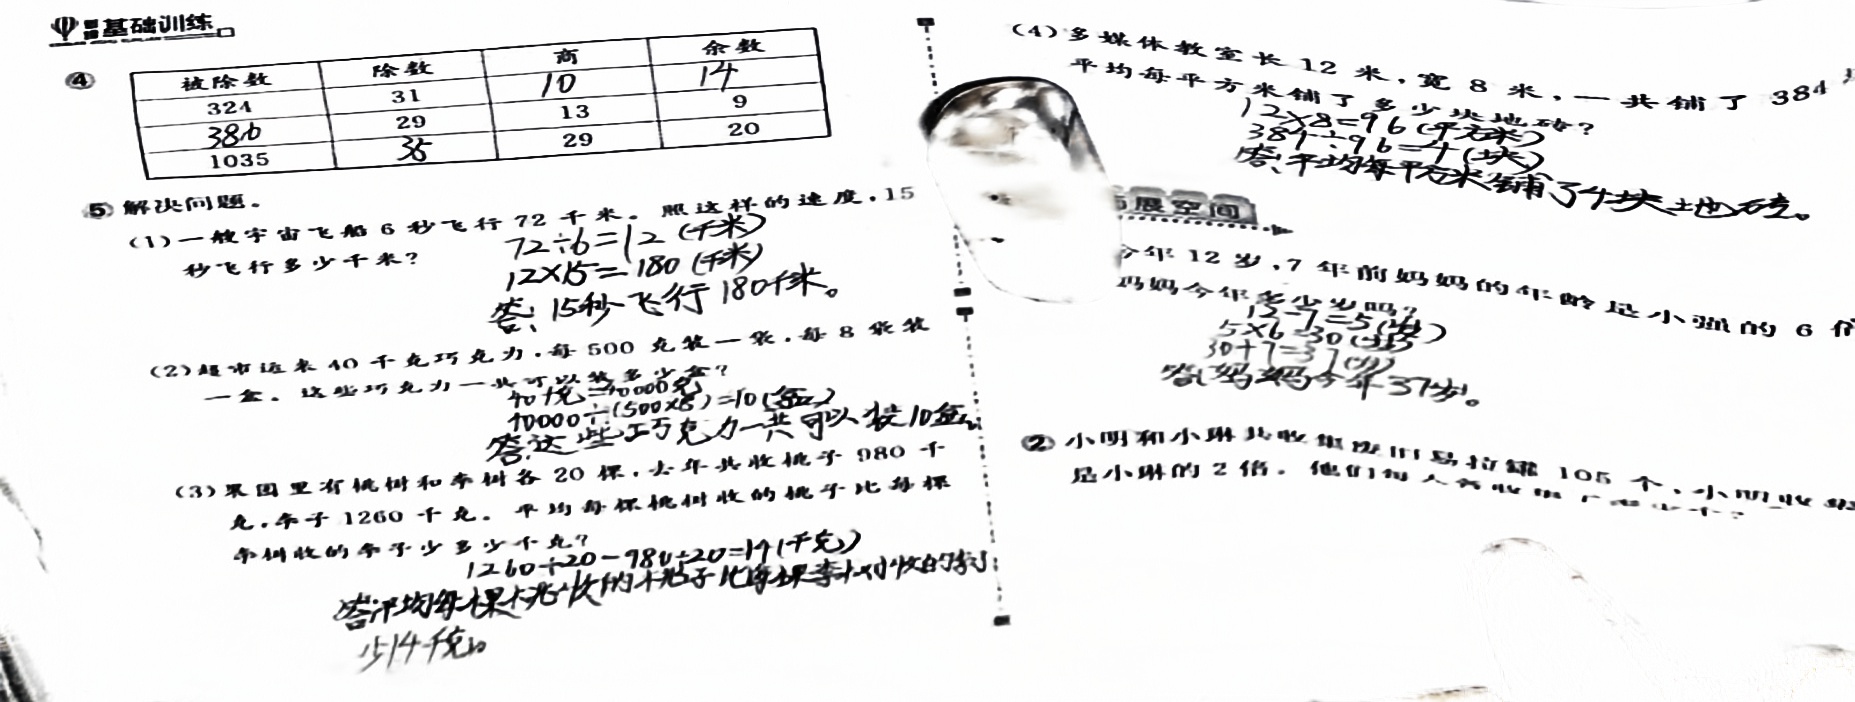 基础训练
④
被除数 除数 商 余数
324 31 10 14
386 29 13 9
1035 35 29 20
⑤ 解决问题。
(1)一艘宇宙飞船6秒飞行72千米。照这样的速度,15
秒飞行多少千米?
72÷6=12(千米)
12×15=180(千米)
答:15秒飞行180千米。
(2)超市运来40千克巧克力,每500克装一袋,每8袋装
一盒。这些巧克力一共可以装多少盒?
40千克=40000克
40000÷(500×8)=10(盒)
答:这些巧克力一共可以装10盒。
(3)果园里有桃树和李树各20棵,去年共收桃子980千
克,李子1260千克。平均每棵桃树收的桃子比每棵
李树收的李子少多少千克?
1260÷20-980÷20=14(千克)
答:平均每棵桃树收的桃子比每棵李树收的李子
少14千克。
(4)多媒体教室长12米,宽8米,一共铺了384
平均每平方米铺了多少块地砖?
12×8=96(平方米)
384÷96=4(块)
答:平均每平方米铺了4块地砖。
展空间
今年12岁,7年前妈妈的年龄是小强的6倍
妈妈今年多少岁吗?
12-7=5(岁)
5×6=30(岁)
30+7=37(岁)
答:妈妈今年37岁。
② 小明和小琳共收集废旧易拉罐105个,小明收集
是小琳的2倍。他们每人各收集了多少个?